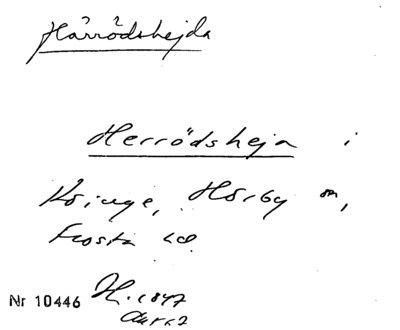 Härrödshejda
Herrödsheja i
Kringe, Hörby sn,
Frosta hd.
Nr 10446 H. 1847